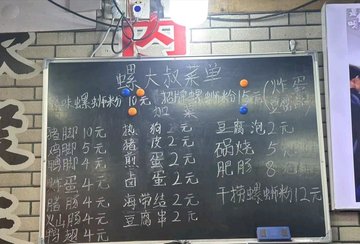 内
螺大叔菜单
原味螺蛳粉10元 招牌螺蛳粉15元 (炸蛋
加菜
猪脚10元 热狗2元 豆腐泡2元
鸡脚5元 猪皮2元 锅烧5元
鸭脚4元 煎蛋2元 肥肠8元
炸蛋4元 卤蛋2元 干捞螺蛳粉12元
4元 海带结2元
4元 豆腐串2元
鸭翅4元